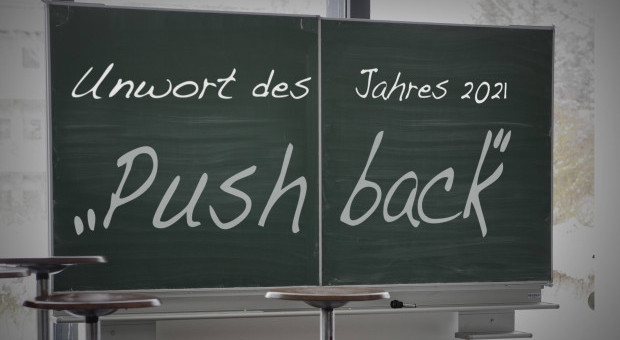 Unwort des Jahres 2021
„Push back“